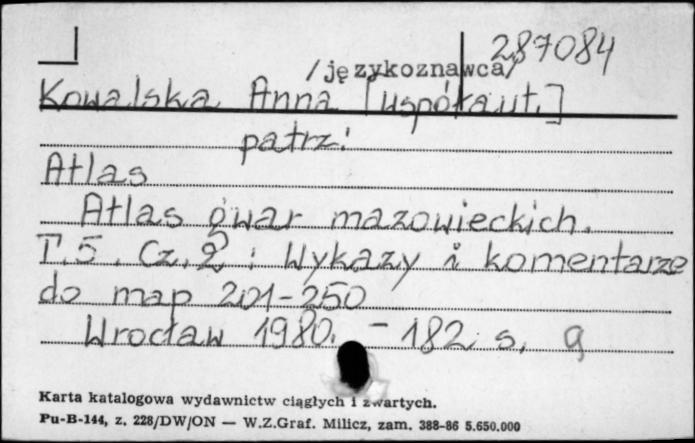 287084
/językoznawca/
Kowalska Anna [współaut.]
patrz:
Atlas
Atlas gwar mazowieckich.
T.5. Cz.2 : Wykazy i komentarze
do map 201-250
Wrocław 1980. - 182 s.
Karta katalogowa wydawnictw ciągłych i zwartych.
Pu-B-144, z. 228/DW/ON — W.Z.Graf. Milicz, zam. 388-86 5.650.000